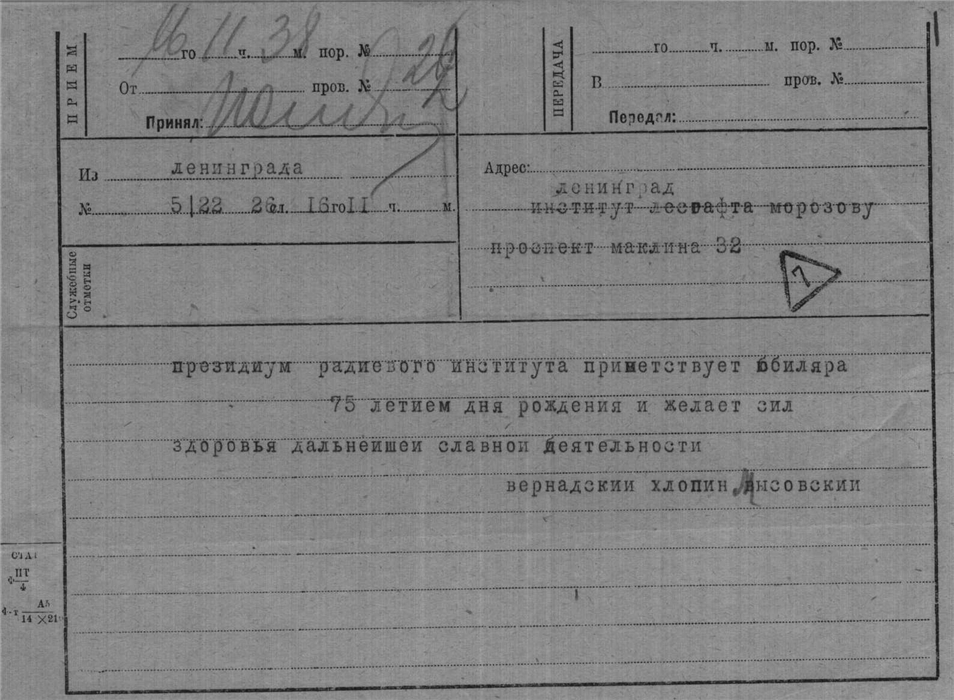 ПРИЕМ
16 11 38
го ч. м. пор. №
От пров. №
Принял:
ПЕРЕДАЧА
го ч. м. пор. №
В пров. №
Передал:
Из ленинграда
№ 5|22 26 сл. 16 го 11 ч. м.
Служебные отметки
Адрес:
ленинград
институт лесгафта морозову
проспект маклина 32
7
президиум радиевого института приветствует юбиляра
75 летием дня рождения и желает сил
здоровья дальнейшей славной деятельности
вернадский хлопин мысовский
ПТ
А5
14 × 21